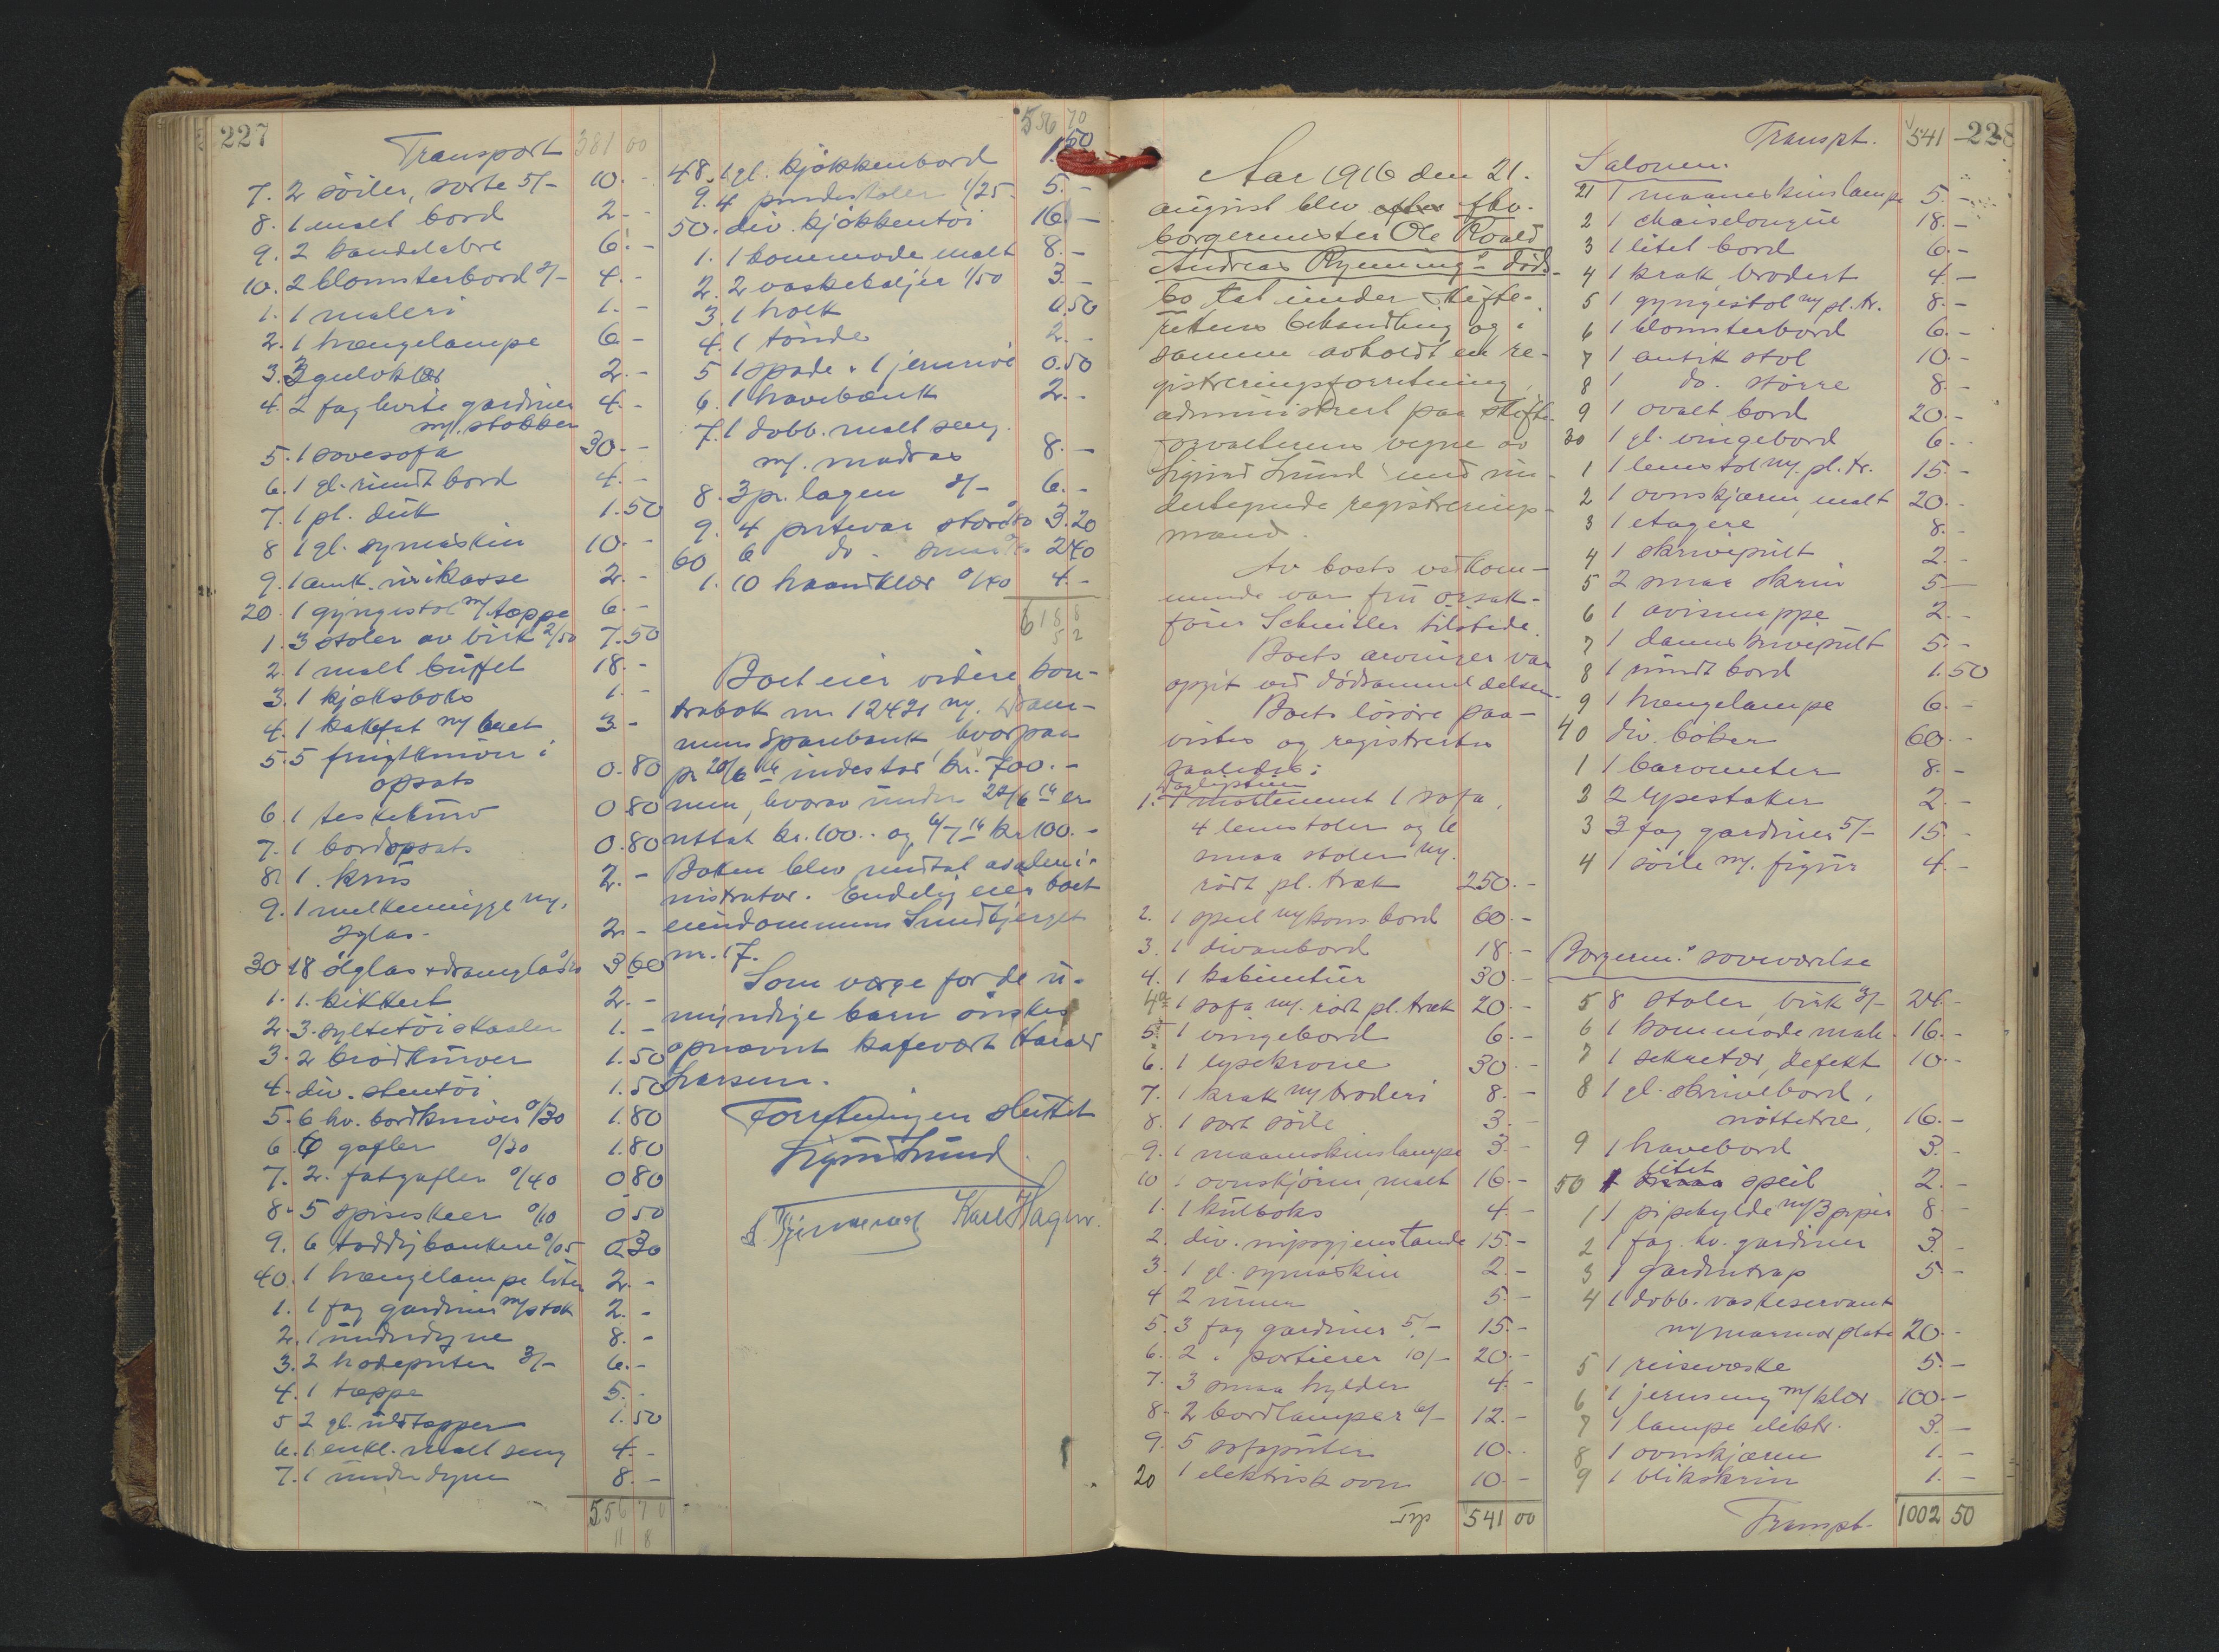 227
Transport 381 00
7. 2 söiler, sorte 5/- 10. -
8. 1 malt bord 2. -
9. 2 kandelabre 6. -
10. 2 blomsterbord 2/- 4. -
1. 1 maleri 1. -
2. 1 hængelampe 6 -
3. 3 gulvklær 2. -
4. 2 fag hvite gardiner 4. -
m/. stokker
5. 1 sovesofa 30. -
6. 1 gl. rundt bord 4. -
7. 1 pl. duk 1.50
8 1 gl. symaskin 10. -
9. 1 amk. urkasse 2. -
20. 1 gyngestol m/ tæppe 6. -
1. 3 stoler av birk 2/50 7.50
2. 1 malt buffet 18. -
3. 1 kjæksboks 1. -
4. 1 kakefat m/ 3 -
5. 5 frugtkniver i
opsats 0.80
6. 1 teskekurv 0 80
7. 1 bordopsats 0.80
8. 1 krus 2. -
9. 1 melkemugge m/.
glas - 2 -
30 18 ölglas + dramglas 3 60
1. 1. kikkert 2. -
2. 3. syltetöiskaaler 1. -
3. 2 brödkurver 1.50
4. div. stentöi 1.50
5. 6 hv. bordkniver 0/30 1.80
6. 6 gafler 0/30 1.80
7. 2. fatgafler 0/40 0 80
8. 5 spiseskeer 0/10 0 50
9. 6 toddybankere 0/05 0 30
40. 1 hængelampe liten 2. -
1. 1 fag gardiner m/ stok 2. -
2. 1 underdyne 8. -
3. 2 hodeputer 3/- 6. -
4. 1 tæppe 5. -
5 2 gl. uldtæpper 1.50
6. 1 enkl. malt seng 4. -
7. 1 underdyne 8. -
556 70
11 8
556 70
48. 1 gl. kjökkenbord 1.50
9. 4 pindestoler 1/25 5. -
50. div. kjökkentöi 16. -
1. 1 kommode, malt 8. -
2. 2 vaskebaljer 1/50 3. -
3. 1 holk 0.50
4. 1 tönde 2. -
5 1 spade + 1 jernrive 0.50
6. 1 havebænk 2. -
7. 1 dobb. malt seng
m/. madras 8. -
8. 3 pr. lagen 2/- 6. -
9. 4 putevar store 0/80 3.20
60 6 do. smaa 2 40
1. 10 haandklær 0/40 4. -
618 8
5 2
Boet eier videre kon-
trabok nr 12421 m/. Dram-
mens Sparebank, hvorpaa
pr 20/6 16 indestaar kr. 700. -
men, hvorav under 24/6 16 er
uttat kr. 100. - og 6/7 16 kr 100. -
Boken blev mottat av admi-
nistrator. Endelig eier boet
eiendommen Sundbjerget
nr. 17.
Som værge for de u-
myndige barn önskes
opnævnt kafevært Harald
Larsen.
Forretningen sluttet
Sigurd Lund
Karl Hagen.
228
Aar 1916 den 21.
august blev efter fhv.
borgermester Ole Roald
Andreas Rynning's döds-
bo tat under skifte-
rettens behandling og i
samme avholdt en re-
gistreringsforretning,
administrert paa skifte-
forvalterens vegne av
Sigurd Lund med un-
dertegnede registrerings-
mænd.
Av boets vedkom-
mende var fru orsak-
förer Scheitler tilstede.
Boets arvinger var
opgit ved dödsanmeldelsen.
Boets lösöre paa-
vistes og registrertes
saaledes:
Dagligstuen
1. 1 möblement 1 sofa,
4 lenestoler og 6
smaa stoler m/.
rödt pl. træk 250. -
2. 1 speil m/ kons. bord 60 -
3. 1 divanbord 18. -
4. 1 kabinetur 30. -
4a 1 sofa m/. rödt pl. træk 20. -
5. 1 vingebord 6. -
6. 1 lysekrone 30. -
7. 1 krak m/ broderi 8. -
8. 1 sort söile 3. -
9. 1 maaneskinslampe 3. -
10 1 ovnskjærm, malt 16. -
1. 1 kulboks 4. -
2. div. nipsgjenstande 15. -
3. 1 gl. symaskin 2. -
4 2 urner 5. -
5. 3 fag gardiner 5/- 15. -
6. 2 " portierer 10/- 20. -
7. 3 smaa hylder 4. -
8. 2 bordlamper 6/- 12. -
9. 5 sofaputer 10. -
20 1 elektrisk ovn 10. -
Trp 541 00
Transpt. 541 -
Salonen.
21 1 maaneskinslampe 5. -
2 1 chaiselongue 18. -
3 1 litet bord 6. -
4 1 krak, brodert 4. -
5 1 gyngestol m/ pl. tr. 8. -
6 1 blomsterbord 6. -
7 1 antik stol 10. -
8 1 do. större 8. -
9 1 ovalt bord 20. -
30 1 gl. vingebord 6. -
1 1 lenestol m/. pl. tr. 15. -
2 1 ovnskjærm, malt 20. -
3 1 etagere 8. -
4 1 skrivepult 2. -
5 2 smaa skrin 5 -
6 1 avismappe 2. -
7 1 dameskrivepult 5. -
8 1 rundt bord 1.50
9 1 hængelampe 6. -
40 div. böker 60. -
1 1 barometer 8. -
2 2 lysestaker 2. -
3 3 fag gardiner 5/- 15. -
4 1 söile m/. figur 4. -
Borgerm.s soveværelse
5 8 stoler, birk 3/- 24. -
6 1 kommode malt. 16. -
7 1 sekretær, defekt 10. -
8 1 gl. skrivebord,
nöttetræ, 16. -
9 1 havebord 3. -
50 1 litet speil 2. -
1 1 pipehylde m/ 3 piper 8. -
2 1 fag. hv. gardiner 3. -
3 1 gardintrap 5 -
4 1 dobb. vaskeservant
m/ marmorplate 20. -
5 1 reisevæske 5. -
6 1 jernseng m/ klær 100. -
7 1 lampe elektr. 3. -
8 1 ovnskjærm 1. -
9 1 blikskrin 1. -
Transpt. 1002 50